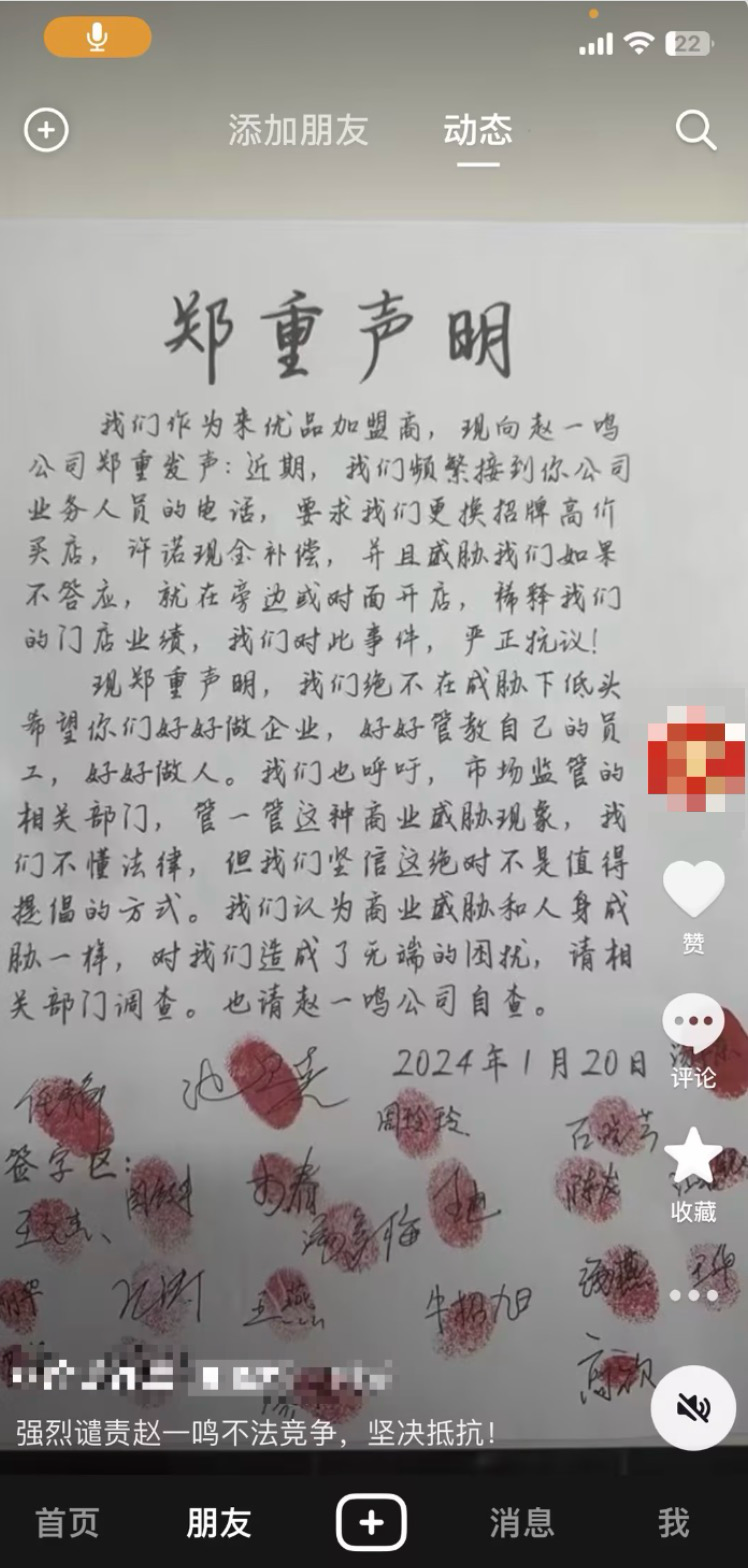 22
添加朋友 动态
郑重声明
我们作为来优品加盟商，现向赵一鸣
公司郑重发声：近期，我们频繁接到你公司
业务人员的电话，要求我们更换招牌高价
买店，许诺现金补偿，并且威胁我们如果
不答应，就在旁边或对面开店，稀释我们
的门店业绩，我们对此事件，严正抗议！
现郑重声明，我们绝不在威胁下低头
希望你们好好做企业，好好管教自己的员
工，好好做人。我们也呼吁，市场监管的
相关部门，管一管这种商业威胁现象，我
们不懂法律，但我们坚信这绝对不是值得
提倡的方式。我们认为商业威胁和人身威
胁一样，对我们造成了无端的困扰，请相
关部门调查。也请赵一鸣公司自查。
赞
2024年1月20日
评论
周玲玲
签字区：
收藏
牛招旭
强烈谴责赵一鸣不法竞争，坚决抵抗！
首页 朋友 消息 我